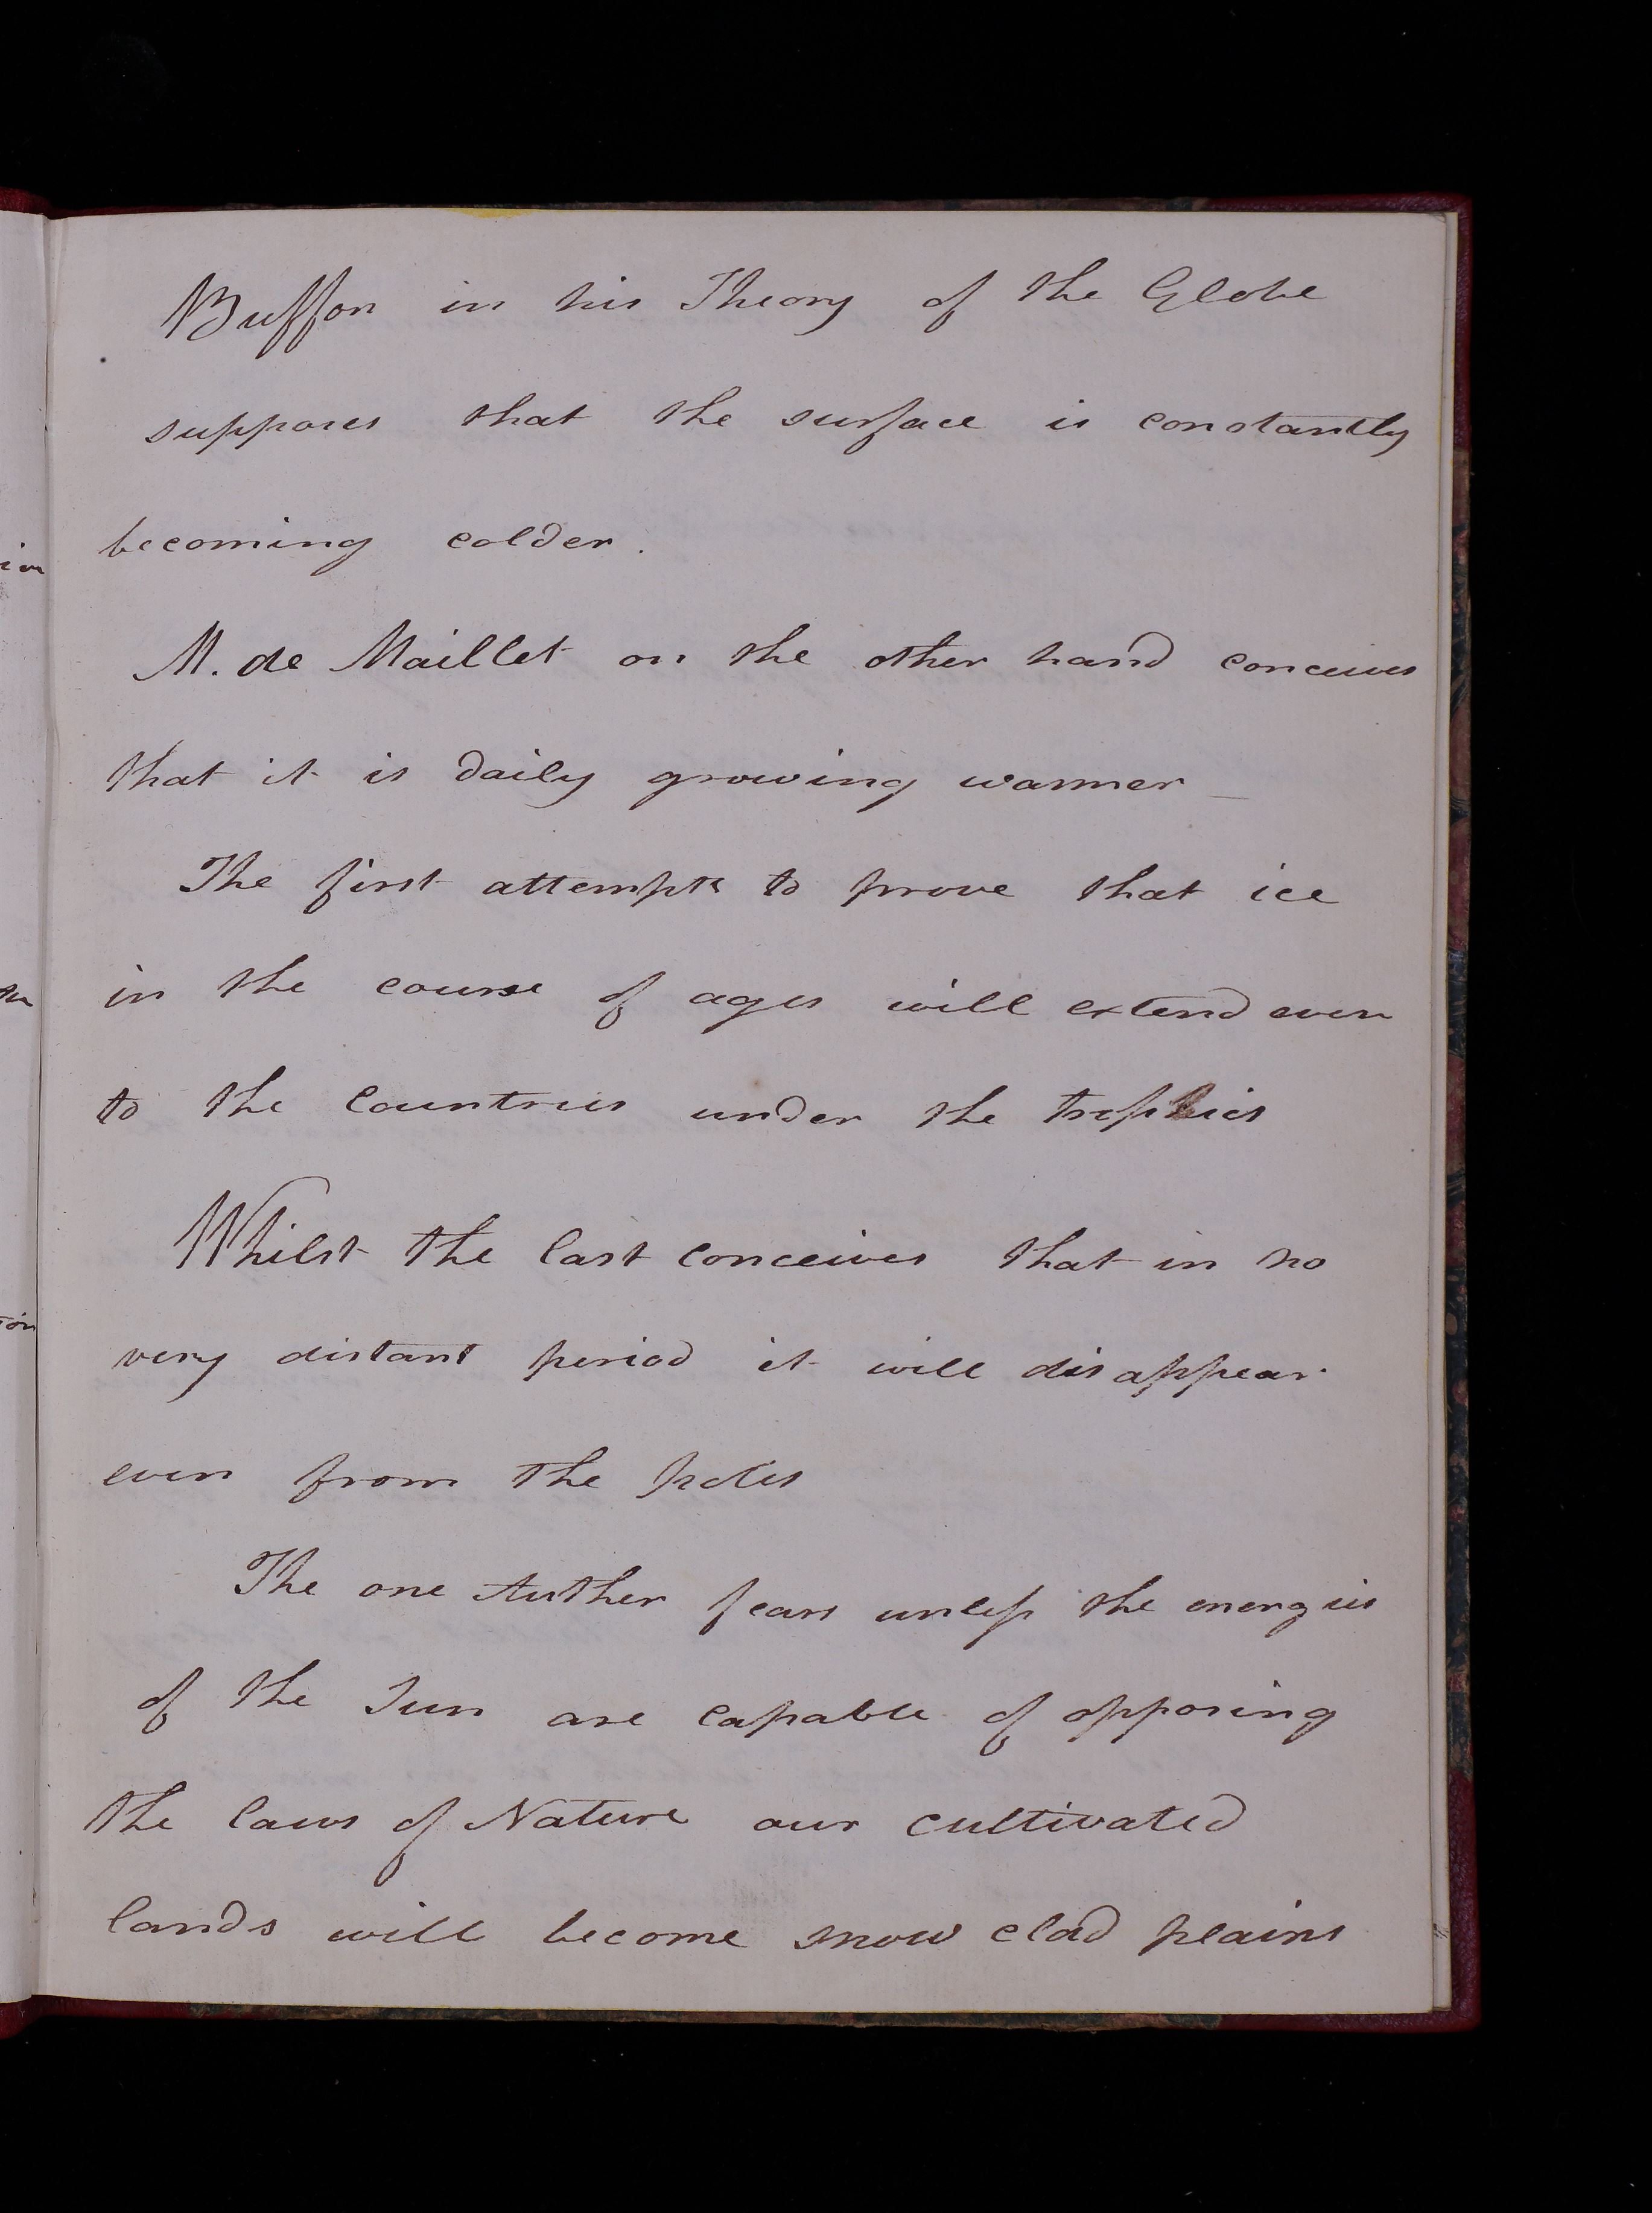 Buffon in his Theory of the Globe
supposes that the surface is constantly
becoming colder.
M. de Maillet on the other hand conceives
that it is daily growing warmer —
The first attempts to prove that ice
in the course of ages will extend even
to the Countries under the tropics
Whilst the last conceives that in no
very distant period it will disappear
even from the poles
The one Auther fears unless the energies
of the Sun are capable of opposing
the laws of Nature our cultivated
lands will become snow clad plains